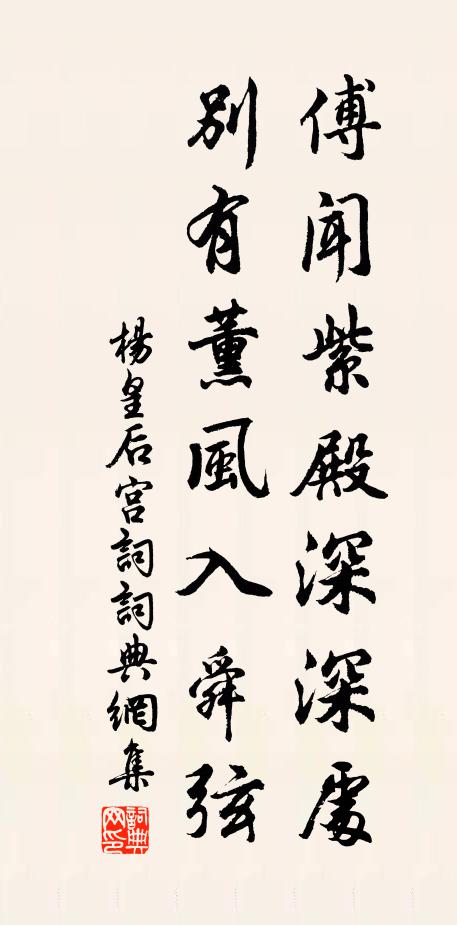 傅聞紫殿深深處
別有薰風入舜弦
楊皇后宮詞詞典網集
詞典網印